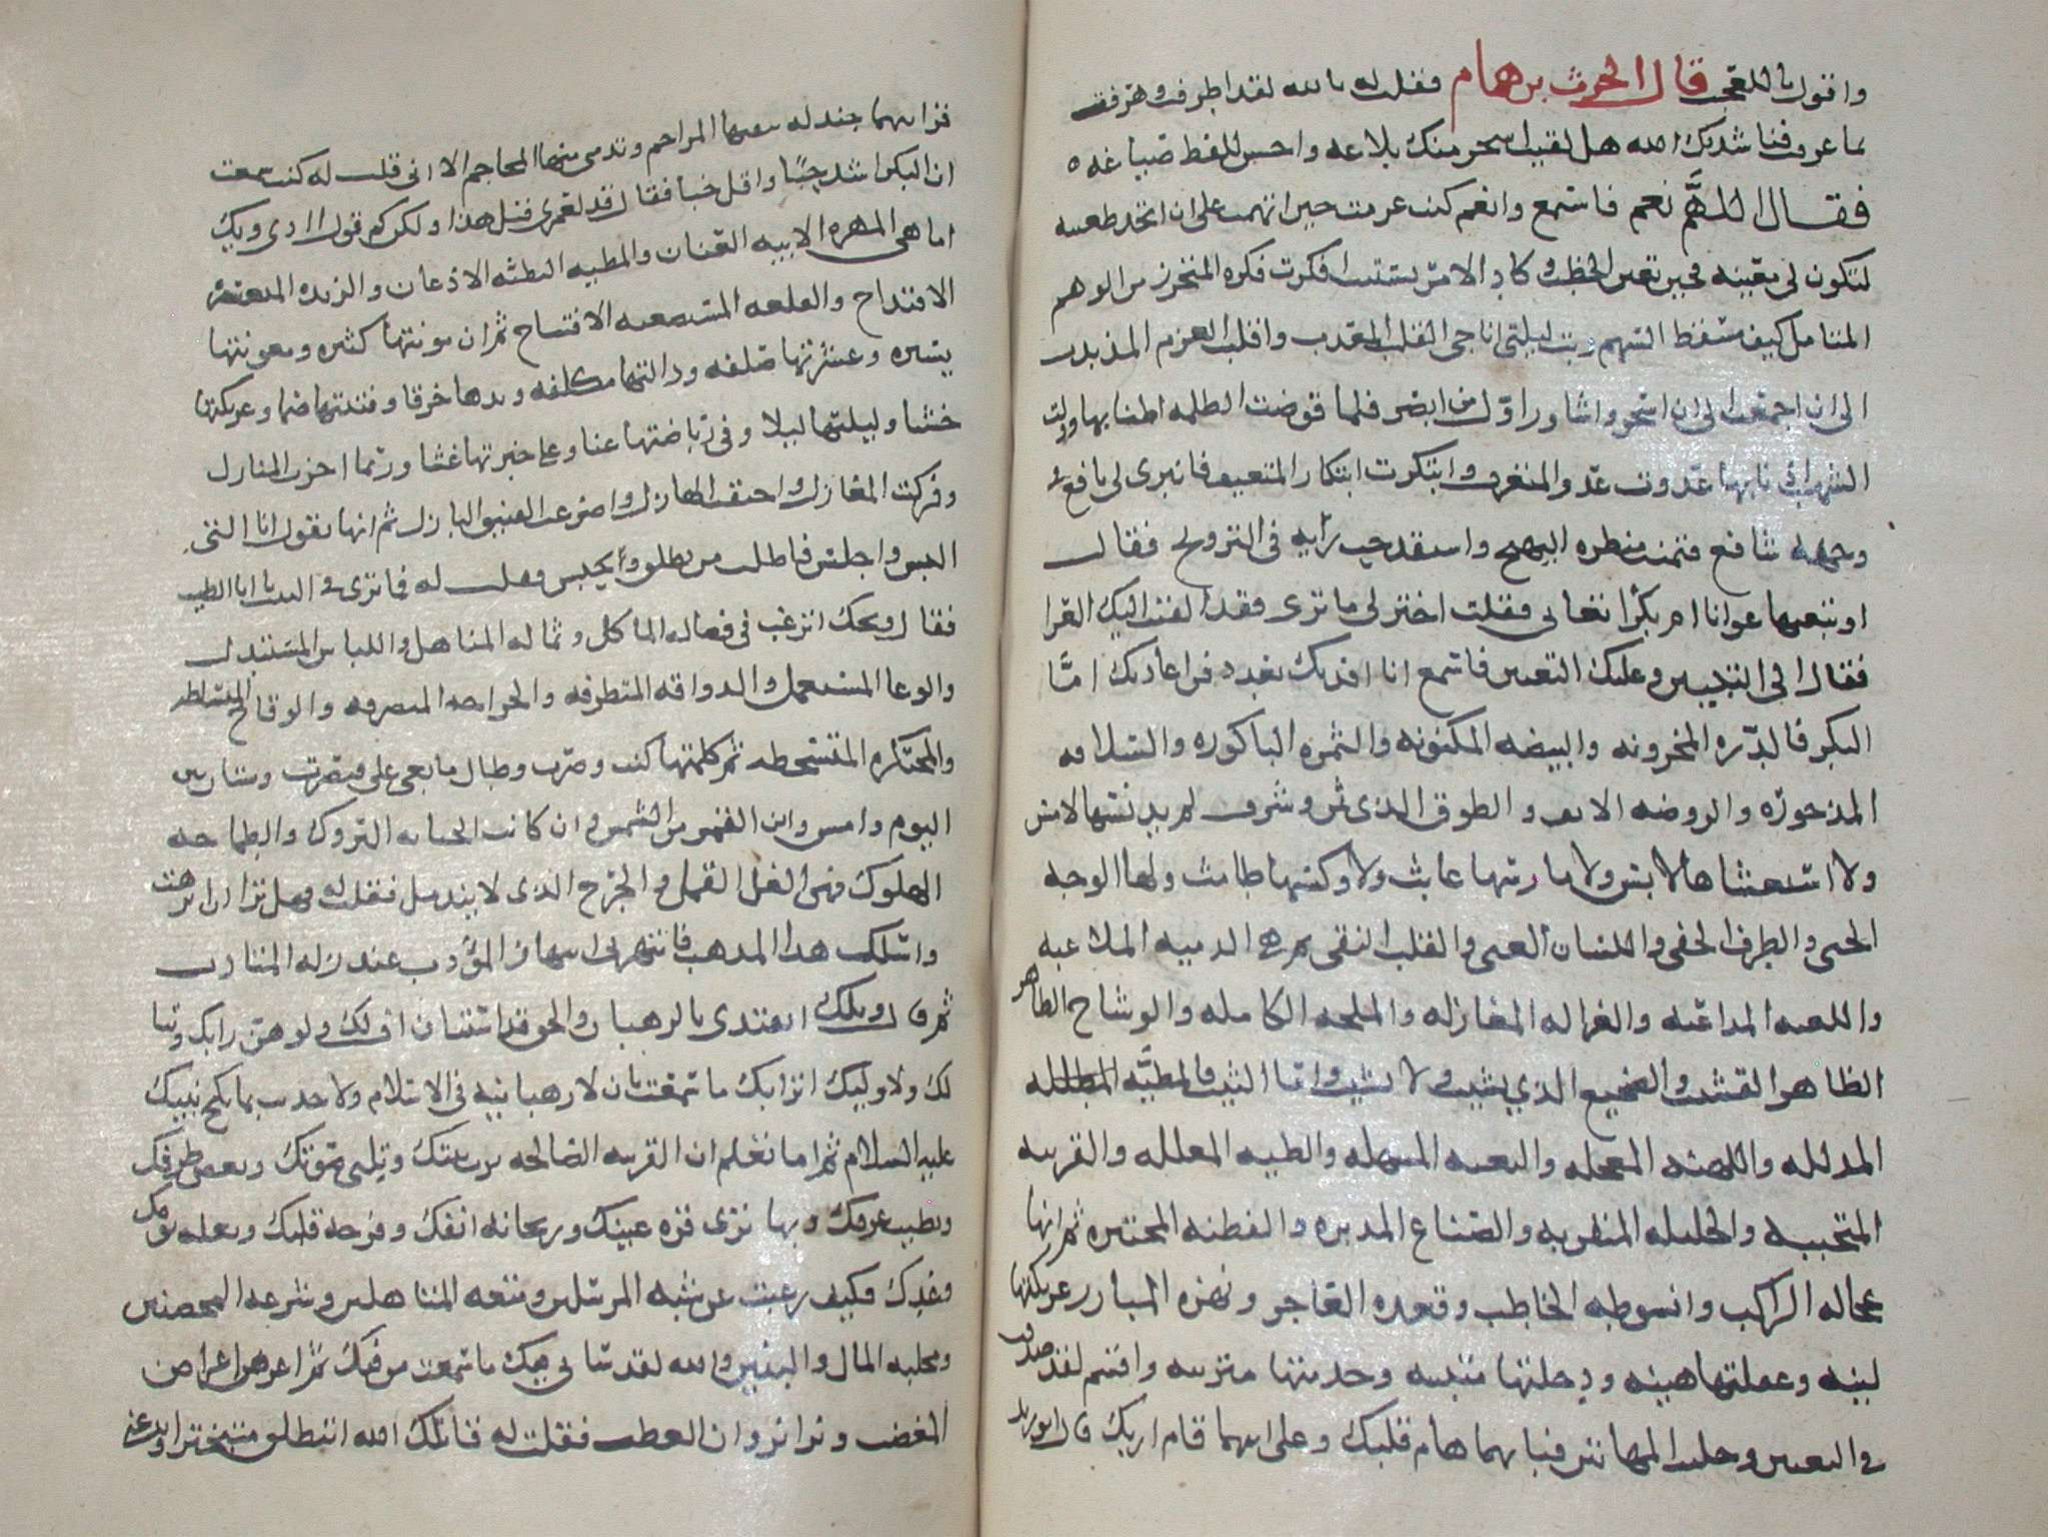 واقول ياللعجب قال الحرث بن همام فقلت له بالله لقد اطرفت وهرفت
بما عرفت فناشدتك الله هل لقيت اسحر منك بلاغه واحسن للفظ صياغه
فقال اللهم نعم فاستمع وانعم كنت عزمت حين اتهمت على ان اتخذ ظعينه
لتكون لي معينه فحين تعين الخطب وكاد الامر يستتب افكرت فكره المتحرز من الوهم
المتامل كيف مسقط السهم وبت ليلتي اناجي القلب المعذب واقلب العزم المذبذب
الى ان اجمعت على ان اسحر واشاور اول من ابصر فلما قوضت الظلمه اطنابها وولت
الشهب اذنابها غدوت غدو المتعرف وابتكرت ابتكار المتعيف فانبرى لي يافع
وجهه شافع فتيمنت بمنظره البهيج واستقدحت رايه في التزويج فقال
او تبغيها عوانا ام بكرا تعانى فقلت اختر لي ما ترى فقد القيت اليك العرا
فقال الي التبيين وعليك التعيين فاسمع انا افديك بعد دفن اعاديك اما
البكر فالدره المخزونه والبيضه المكنونه والثمره الباكوره والسلافه
المذخوره والروضه الانف والطوق الذي ثمن وشرف لم يدنسها لامس
ولا استغشاها لابس ولا مارسها عابث ولا وكسها طامث ولها الوجه
الحيي والطرف الخفي واللسان العيي والقلب النقي ثم هي الدميه الملاعبه
واللعبه المداعبه والغزاله المغازله والملحه الكامله والوشاح الطاهر
الطاهر القشيب والضجيع الذي يشب ولا يشيب واما الثيب فالمطيه المذلله
المذلله واللهنه المعجله والبغيه المسهله والطبه المعلله والقرينه
المتحببه والخليله المتقربه والصناع المدبره والفطنه المختبره ثم انها
عجاله الراكب وانشوطه الخاطب وقعده العاجز ونهزه المبارز عريكتها
لينه وعقلتها هينه ودخلتها متبينه وخدمتها مزينه واقسم لقد صدقت
في النعتين وجلوت المهاتين فبايهما هام قلبك وعلى ايهما قام اربك قال ابو زيد
فرايتها جندله يتقيها المراجم وتدمى منها المحاجم الا اني قلت له كنت سمعت
ان البكر اشد حبا واقل خبا فقال قد لعمري قيل هذا ولكن كم قول اذى ويك
اما هي المهره الابيه العنان والمطيه البطئه الاذعان والزنده المتعسره
الاقتداح والقلعه المستصعبه الافتتاح ثم ان مونتها كثيره ومعونتها
يسيره وعشرتها صلفه ودالتها مكلفه ويدها خرقا وفتنتها صما وعريكتها
خشنا وليلتها ليلا وفي رياضتها عنا وعلى خبرتها غشا وربما اخزت المنازل
وفركت المغازل واحنقت الهازل واضرعت الفنيق البازل ثم انها تقول انا التي
البس واجلس فاطلب من يطلق ويحبس فقلت له فما ترى في الثيب يا ابا الطيب
فقال ويحك اترغب في فضاله الماكل وثماله المناهل واللباس المستبذل
والوعا المستعمل والذواقه المتطرفه والخراجه المتصرفه والوقاح المتسلطه
والمحتكره المتسخطه ثم كلمتها كنت وصرت وطال ما بغي علي فنصرت وشتان بين
اليوم وامس واين القمر من الشمس وان كانت الحنانه البروك والطماحه
الهلوك فهي الغل القمل والجرح الذي لا يندمل فقلت له فهل ترى ان اترهب
واسلك هذا المذهب فانتهرني انتهار المؤدب عند زله المتادب
ثم قال ويلك اتقتدي بالرهبان والحق قد استبان اف لك ولوهن رايك وتبا
لك ولاوليك اتراك ما سمعت بان لا رهبانيه في الاسلام ولا حدثت بمناكح نبيك
عليه السلام ثم اما تعلم ان القرينه الصالحه ترب بيتك وتلبي صوتك وتغض طرفك
وتطيب عرفك وبها ترى قره عينك وريحانه انفك وفرحه قلبك وتعله يومك
وغدك فكيف رغبت عن سنه المرسلين ومتعه المتاهلين وشرعه المحصنين
ومجلبه المال والبنين والله لقد سأني فيك ما سمعت من فيك ثم اعرض اعراض
المغضب ونزا نزوان العنظب فقلت له قاتلك الله اتنطلق متبخترا وتدعني